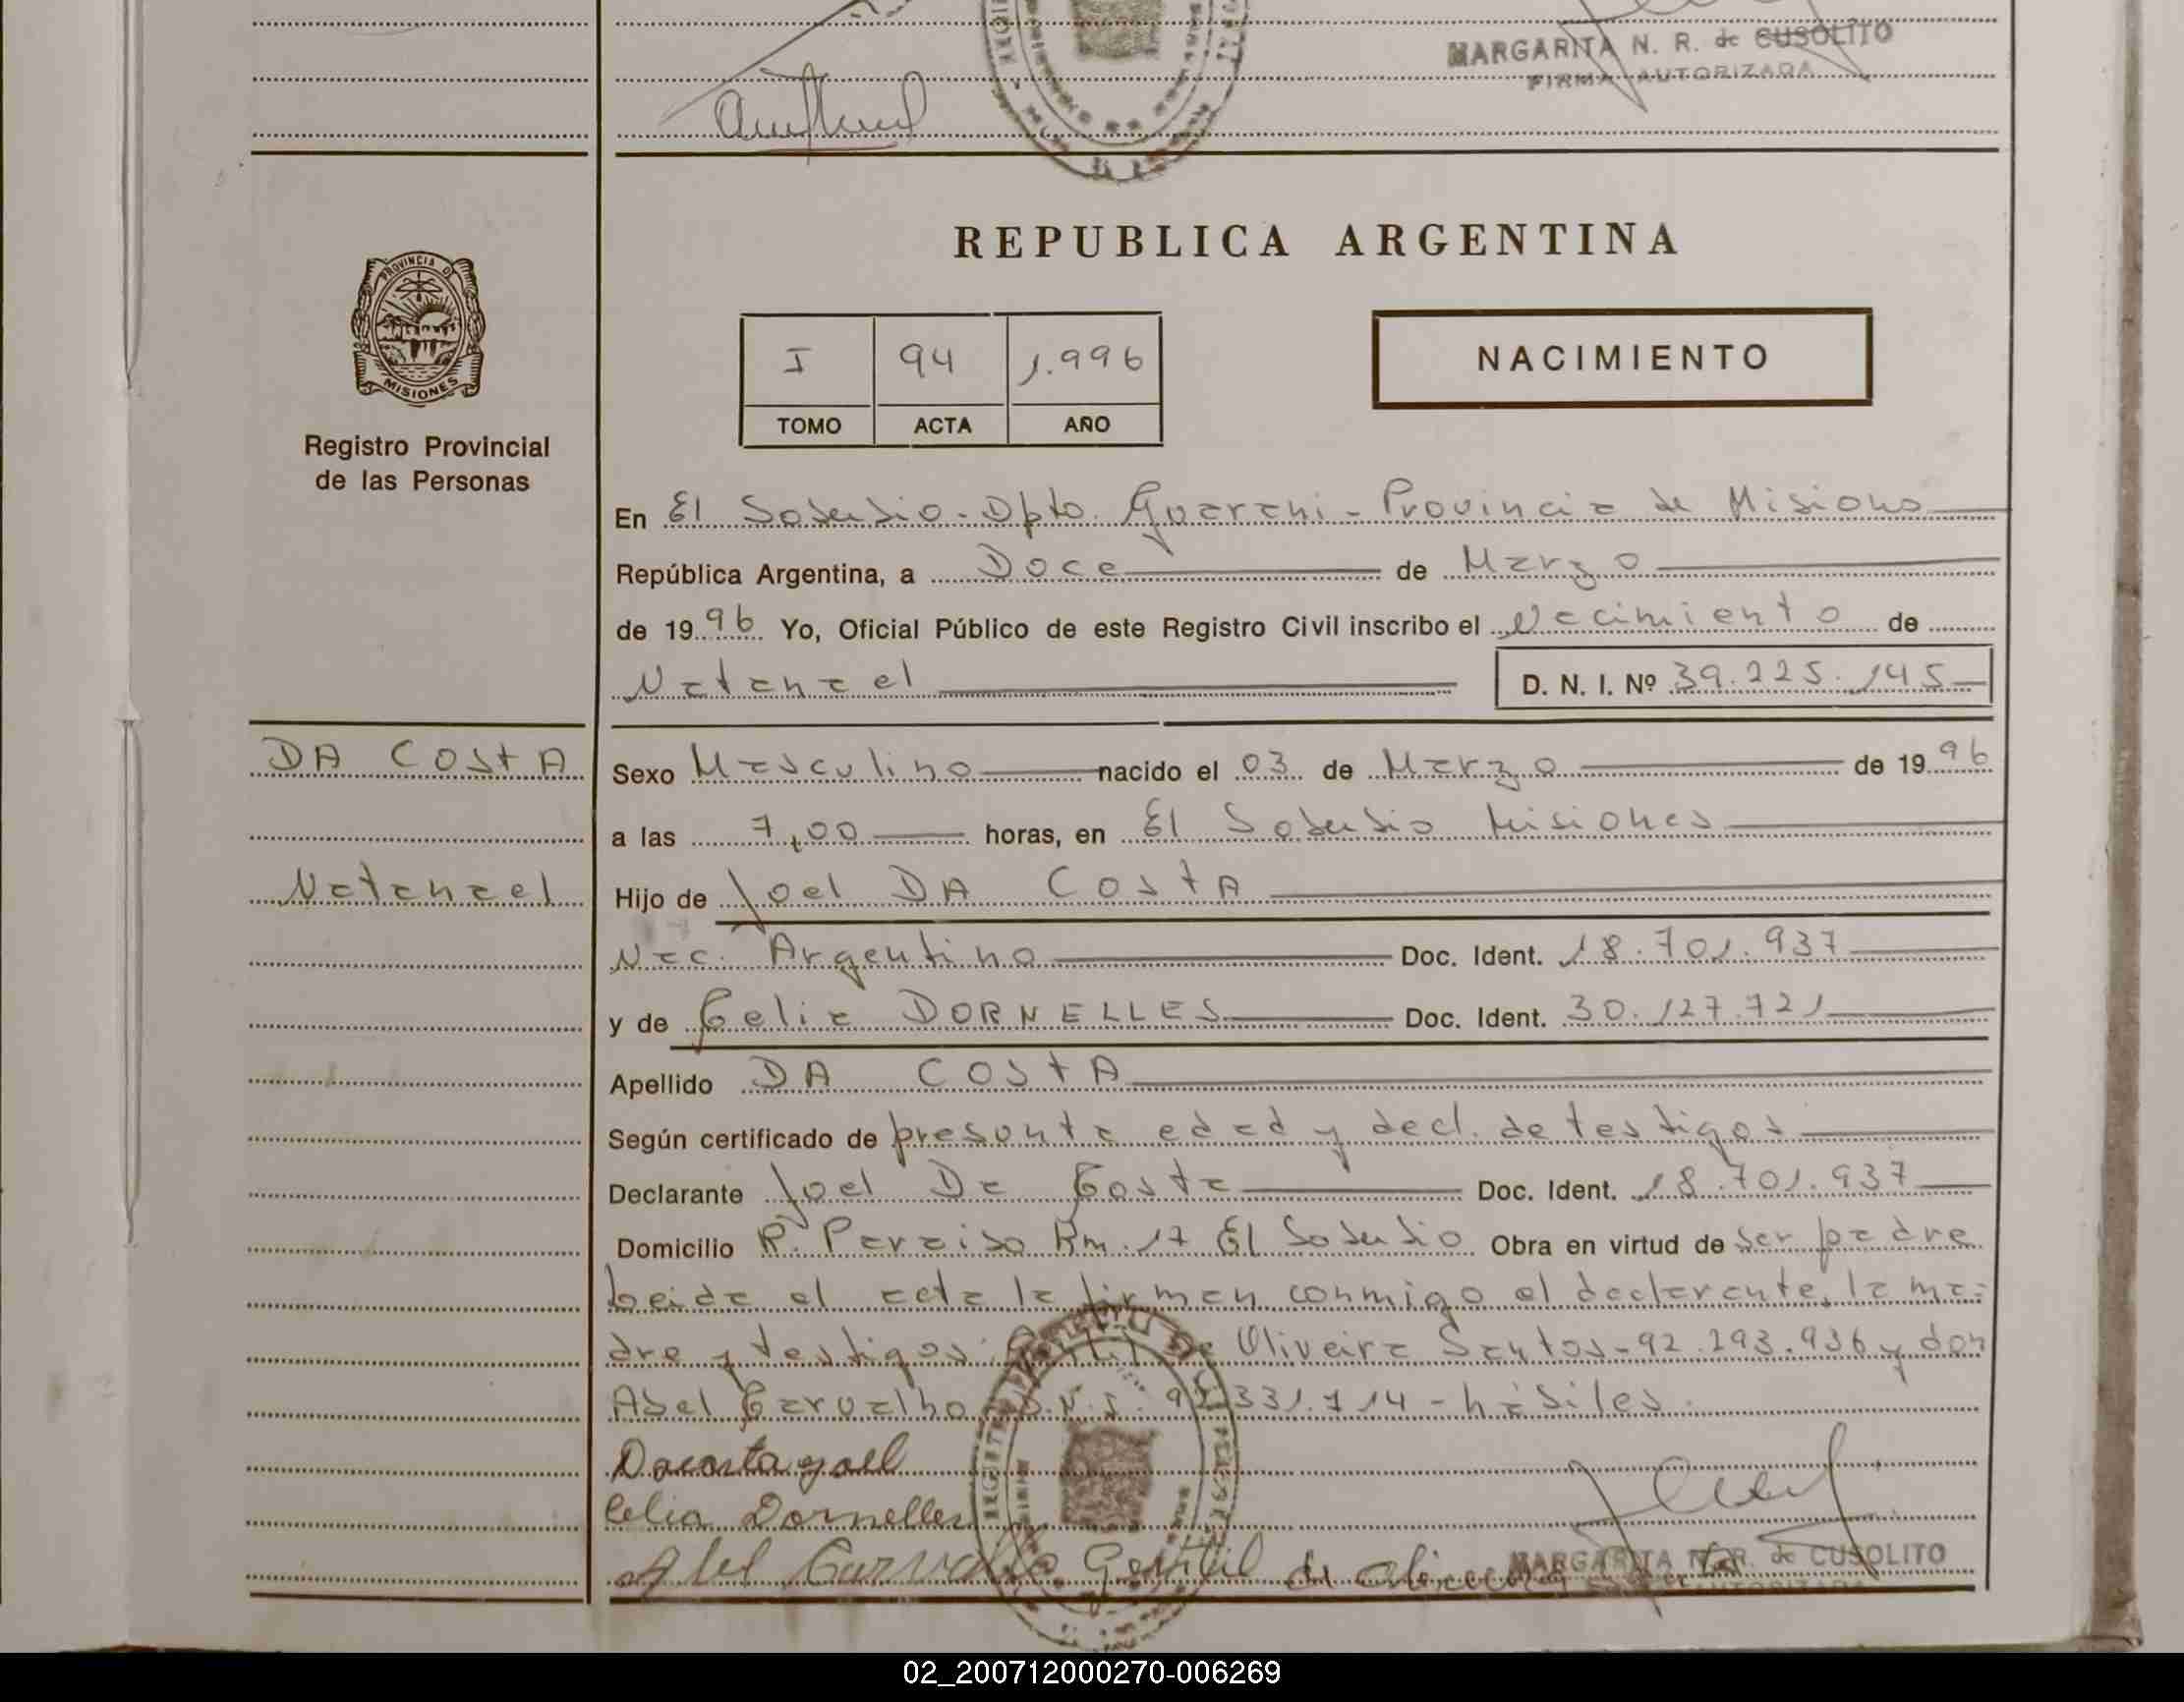 MARGARITA N. R. de CUSOLITO
FIRMA AUTORIZADA
PROVINCIA DE
MISIONES
Registro Provincial
de las Personas
REPUBLICA ARGENTINA
I 94 1.996
TOMO ACTA AÑO
NACIMIENTO
En El Soberbio - Dpto. Guarani - Provincia de Misiones
República Argentina, a Doce de Marzo
de 1996 Yo, Oficial Público de este Registro Civil inscribo el Nacimiento de
Natanael D. N. I. Nº 39.225.145
DA COSTA
Sexo Masculino nacido el 03 de Marzo de 1996
a las 7,00 horas, en El Soberbio Misiones
Natanael
Hijo de Joel DA COSTA
Nac. Argentino Doc. Ident. 18.701.937
y de Celia DORNELLES Doc. Ident. 30.127.721
Apellido DA COSTA
Según certificado de presunta edad y decl. de testigos
Declarante Joel Da Costa Doc. Ident. 18.701.937
Domicilio P. Paraiso Km. 17 El Soberbio Obra en virtud de ser padre
Leida el acta la firman conmigo el declarante, la ma-
dre y testigos: Gentil De Oliveira Santos - 92.193.936 y don
Abel Carvalho D.N.I. 92.331.714 - hábiles.
Dacosta Joel
Celia Dornelles
Abel Carvalho Gentil de
MARGARITA N. R. de CUSOLITO
AUTORIZADA
02_200712000270-006269